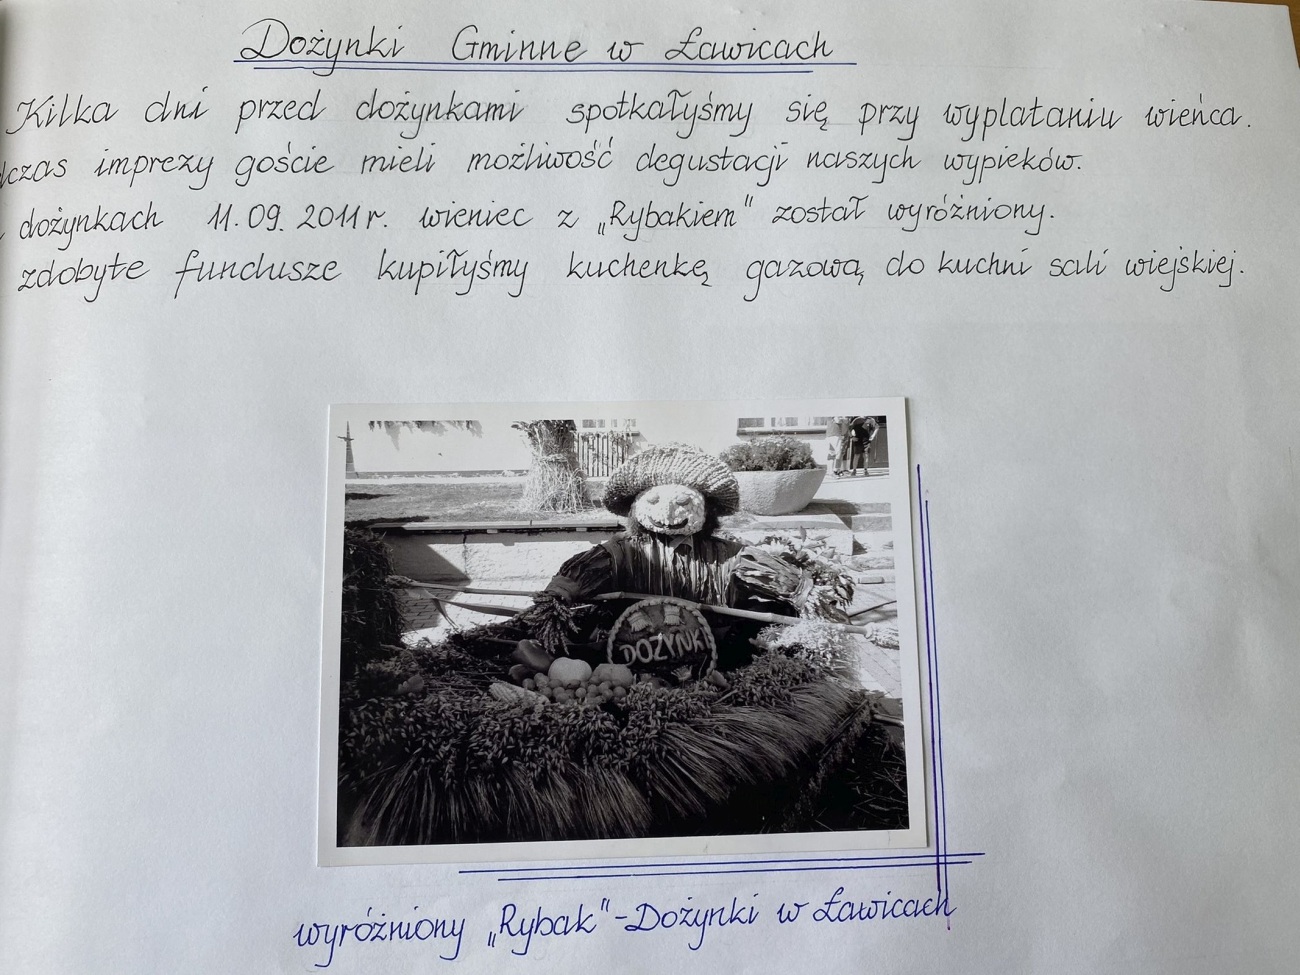 Dożynki Gminne w Ławicach
Kilka dni przed dożynkami spotkałyśmy się przy wyplataniu wieńca.
dczas imprezy goście mieli możliwość degustacji naszych wypieków.
dożynkach 11.09.2011r. wieniec z „Rybakiem" został wyróżniony.
zdobyte fundusze kupiłyśmy kuchenkę gazową do kuchni sali wiejskiej.
DOŻYNKI
wyróżniony „Rybak"-Dożynki w Ławicach